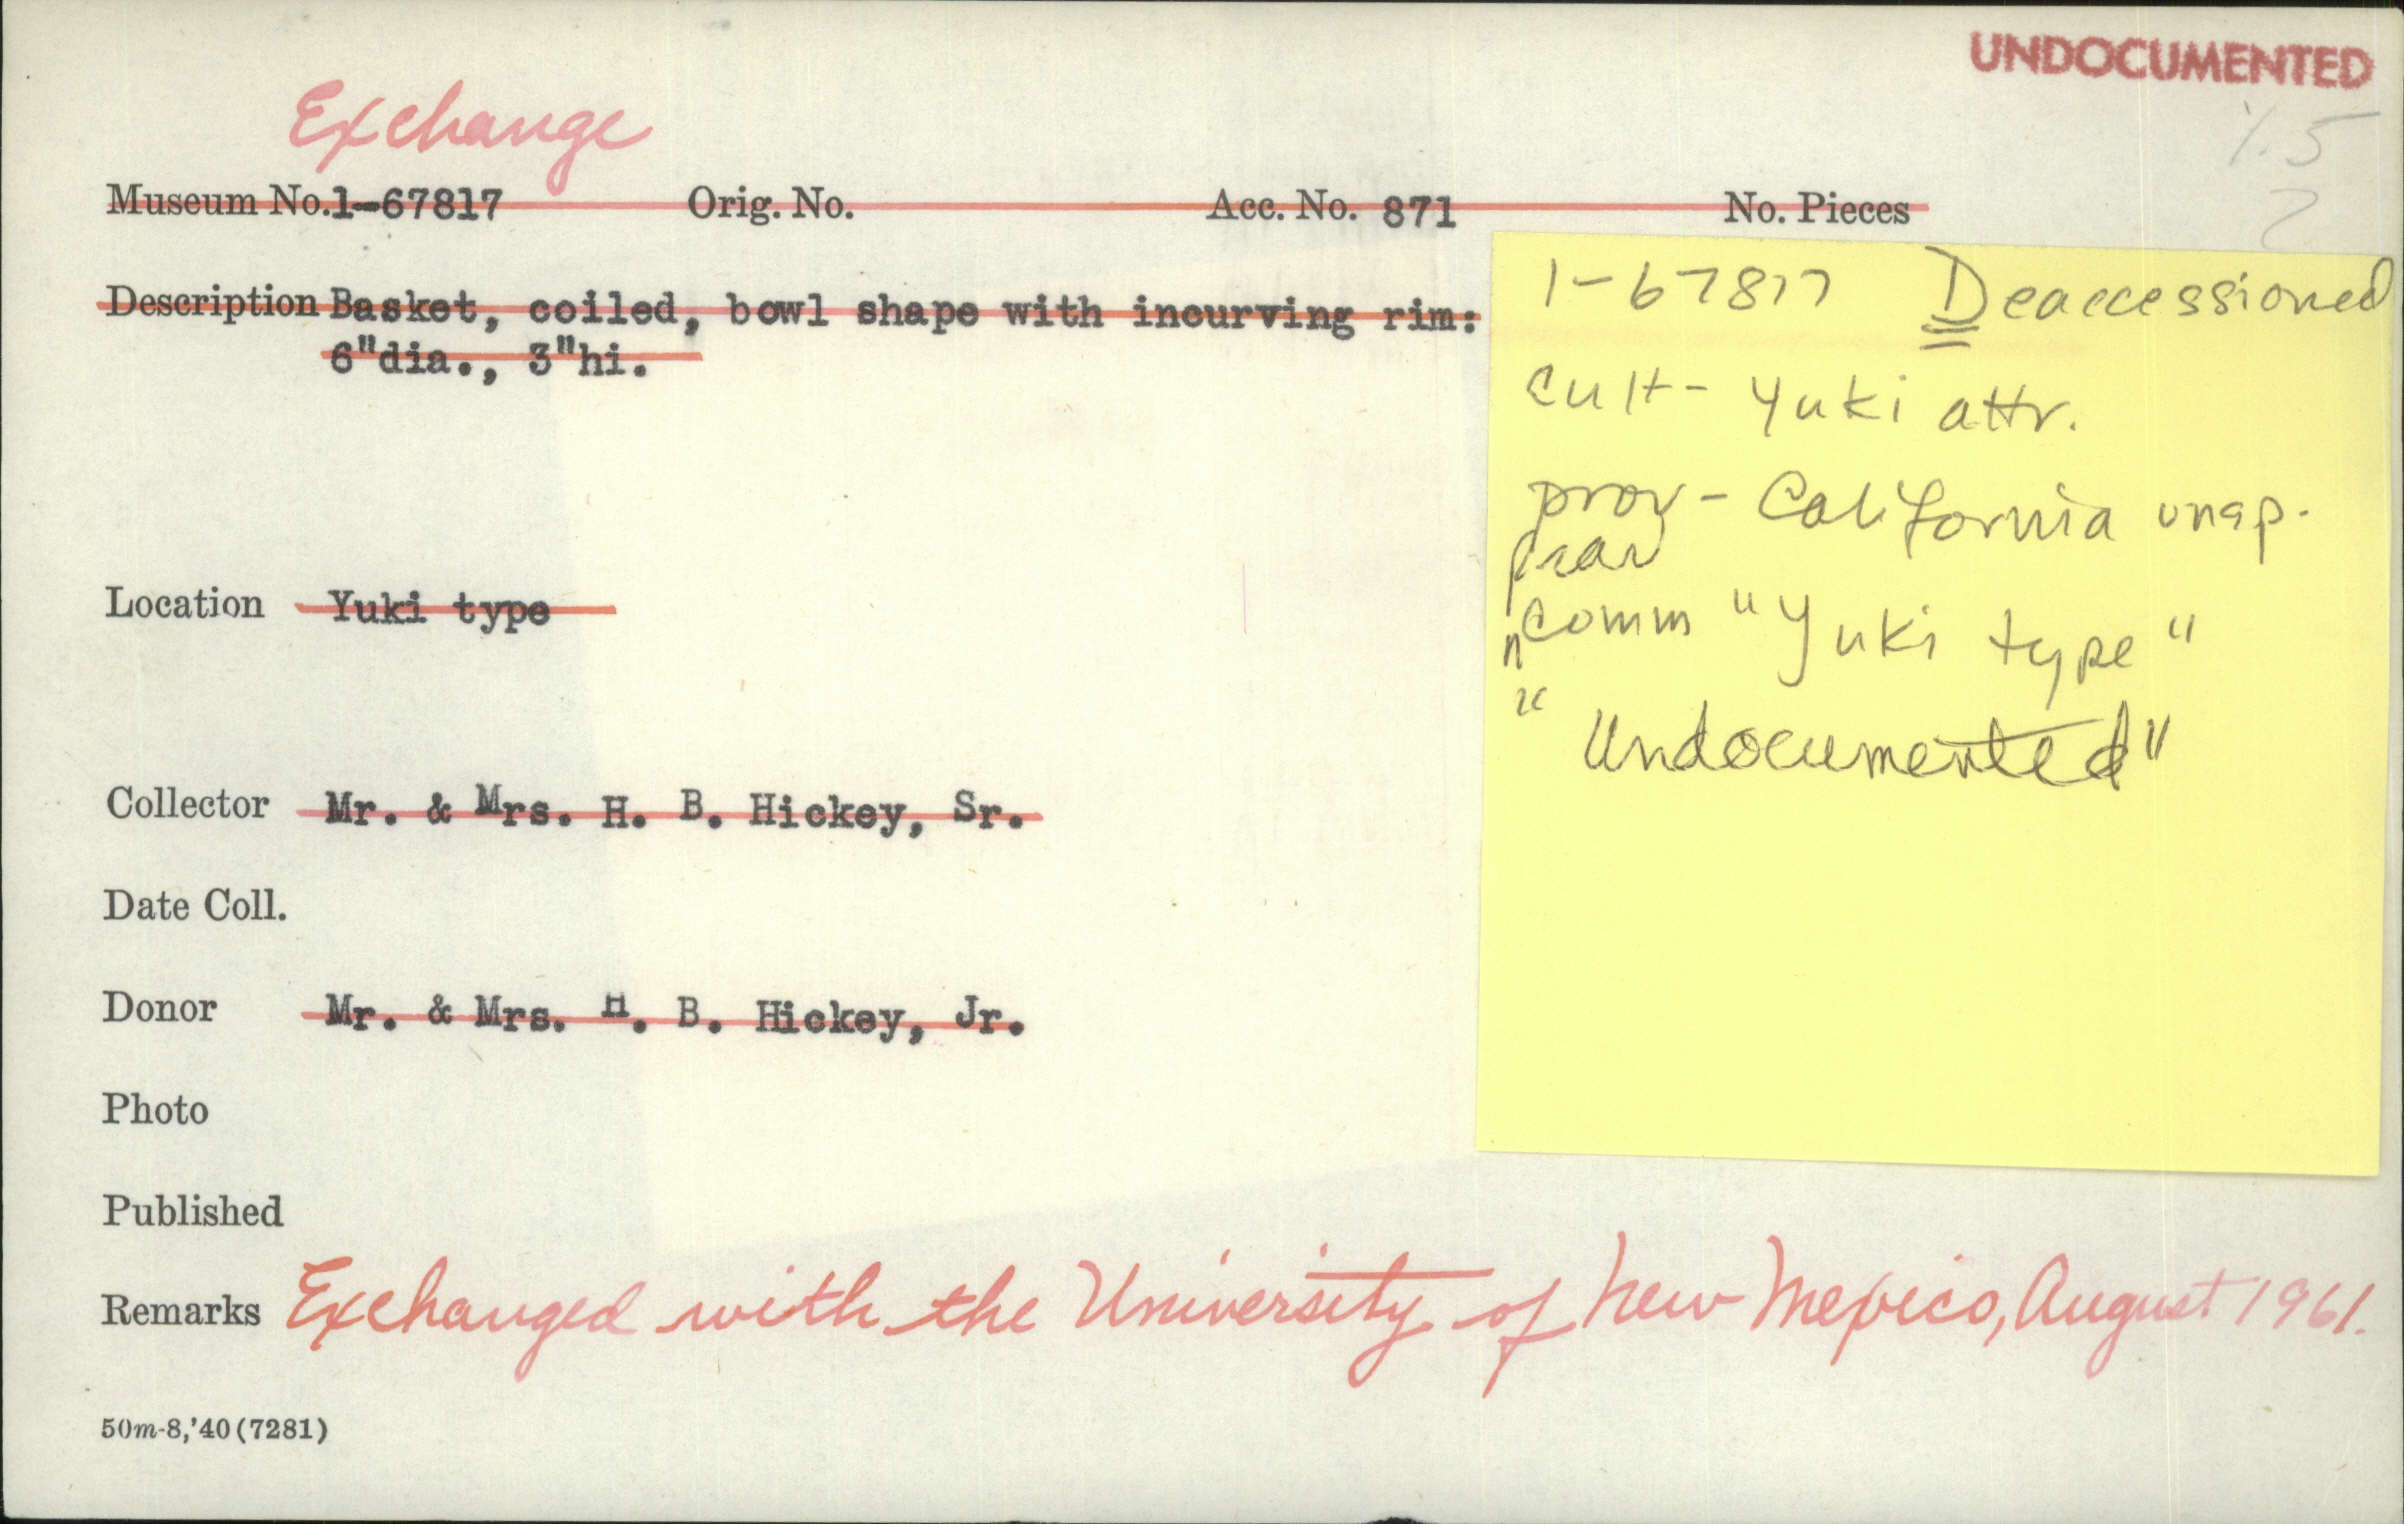 UNDOCUMENTED
Exchange
1.5
2
Museum No. 1-67817 Orig. No. Acc. No. 871 No. Pieces
Description Basket, coiled, bowl shape with incurving rim:
6"dia., 3"hi.
Location Yuki type
Collector Mr. & Mrs. H. B. Hickey, Sr.
Date Coll.
Donor Mr. & Mrs. H. B. Hickey, Jr.
Photo
Published
Remarks Exchanged with the University of New Mexico, August 1961.
50m-8,'40(7281)
1-67817 Deaccessioned
cult- Yuki attr.
prov - California
comm "Yuki type"
"Undocumented"